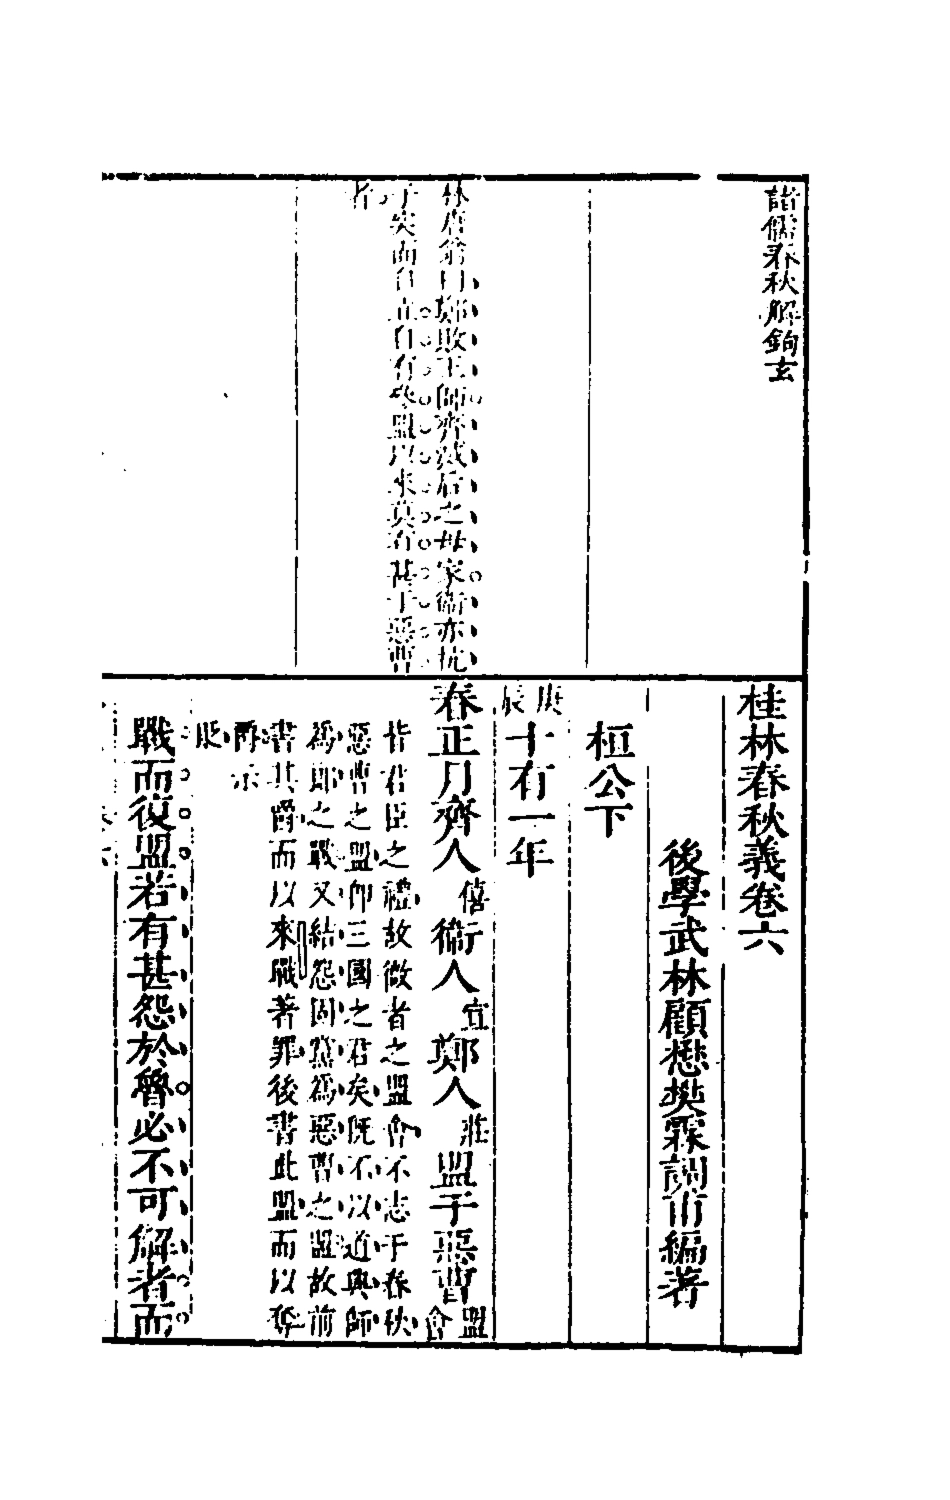 諸儒春秋解鉤玄
林唐翁曰鄭敗王師齊滅后之母家衛亦抗
子突而自立自有參盟以來莫有甚于惡曹
者
桂林春秋義卷六
後學武林顧懋樊霖調甫編著
桓公下
庚辰十有一年
春正月齊人僖衞人宣鄭人莊盟于惡曹盟會
皆君臣之禮故微者之盟會不志于春秋
惡曹之盟卽三國之君矣旣不以道興師
爲郎之戰又結怨固黨爲惡曹之盟故前
書其爵而以來戰著罪後書此盟而以奪
爵示
貶
戰而復盟若有甚怨於魯必不可解者而